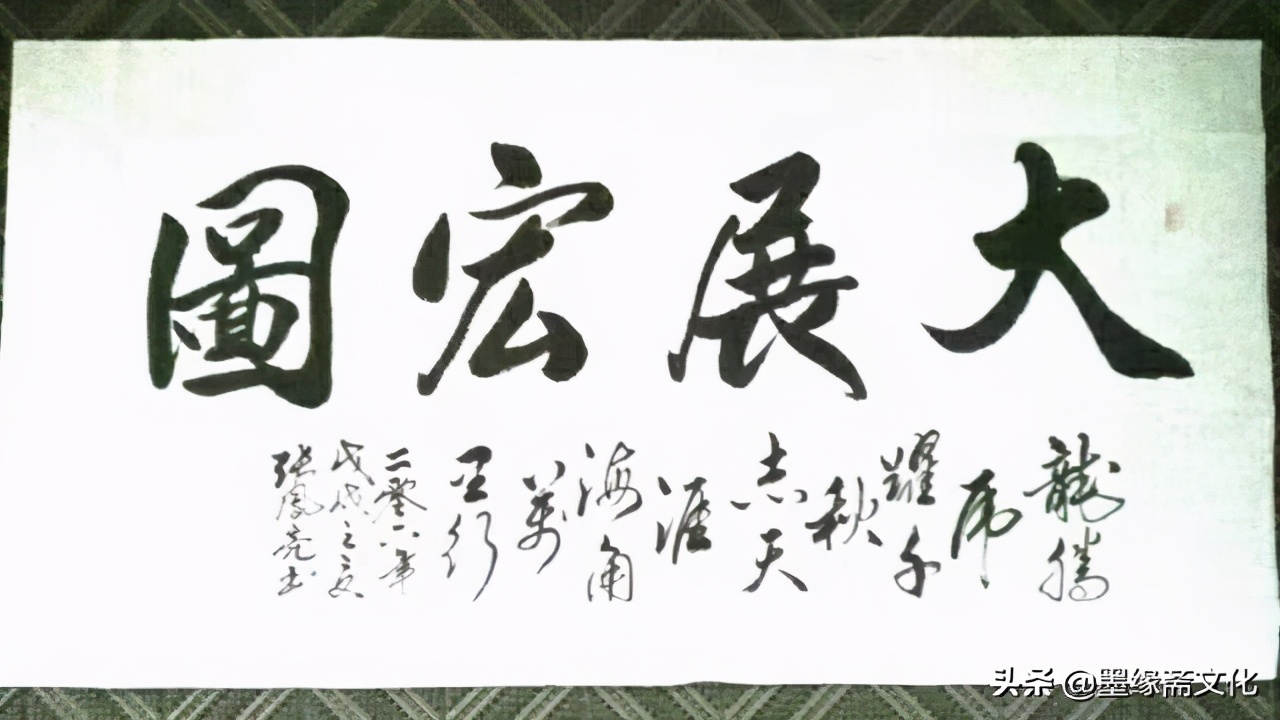 大展宏圖
龍騰
虎
耀千
秋
志天
涯
海角
萬
里行
二零一八年
戊戌之夏
張鳳亮书
头条 @墨缘斋文化